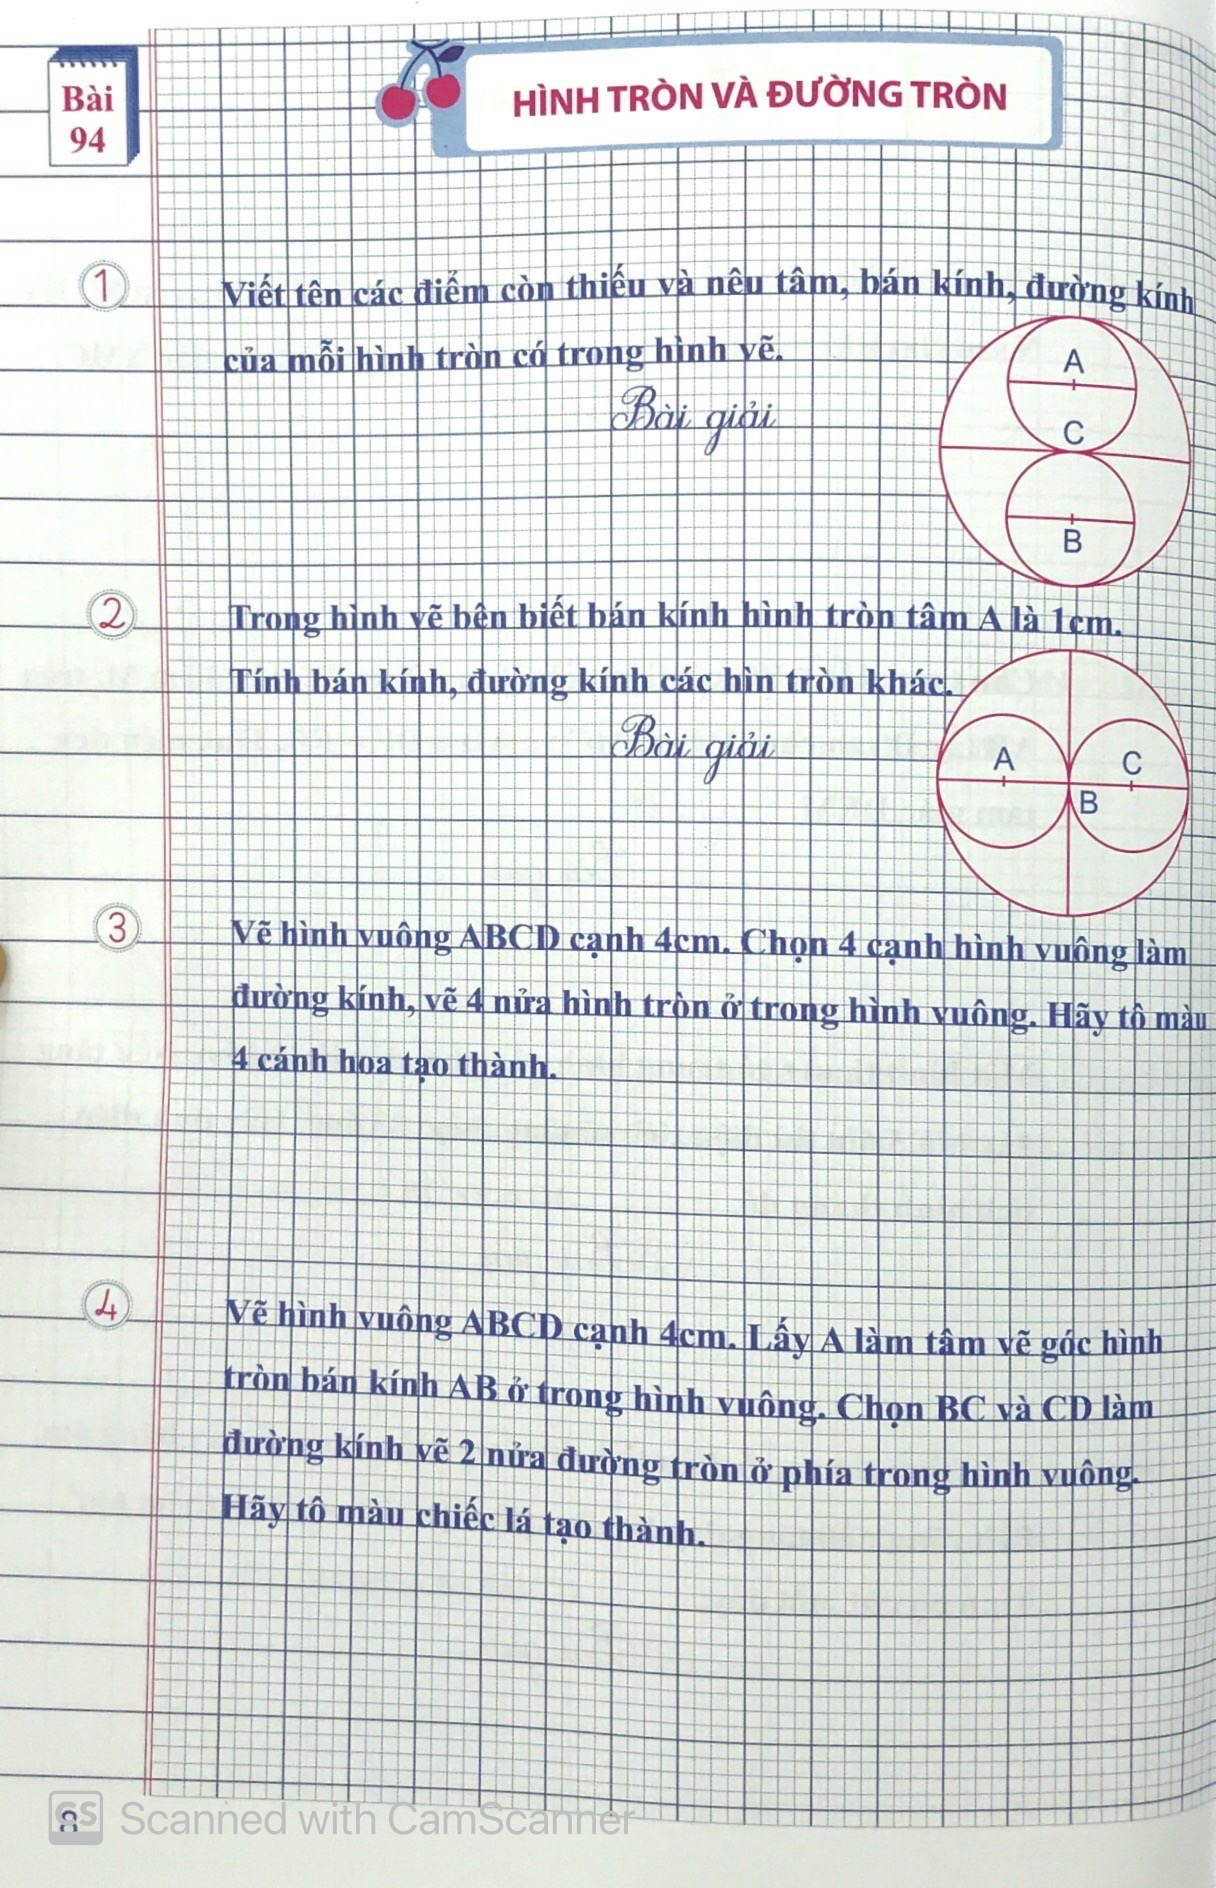 Bài
94
HÌNH TRÒN VÀ ĐƯỜNG TRÒN
1
Viết tên các điểm còn thiếu và nêu tâm, bán kính, đường kính
của mỗi hình tròn có trong hình vẽ.
Bài giải
A
C
B
2
Trong hình vẽ bên biết bán kính hình tròn tâm A là 1cm.
Tính bán kính, đường kính các hìn tròn khác.
Bài giải
A
C
B
3
Vẽ hình vuông ABCD cạnh 4cm. Chọn 4 cạnh hình vuông làm
đường kính, vẽ 4 nửa hình tròn ở trong hình vuông. Hãy tô màu
4 cánh hoa tạo thành.
4
Vẽ hình vuông ABCD cạnh 4cm. Lấy A làm tâm vẽ góc hình
tròn bán kính AB ở trong hình vuông. Chọn BC và CD làm
đường kính vẽ 2 nửa đường tròn ở phía trong hình vuông.
Hãy tô màu chiếc lá tạo thành.
8
CS Scanned with CamScanner